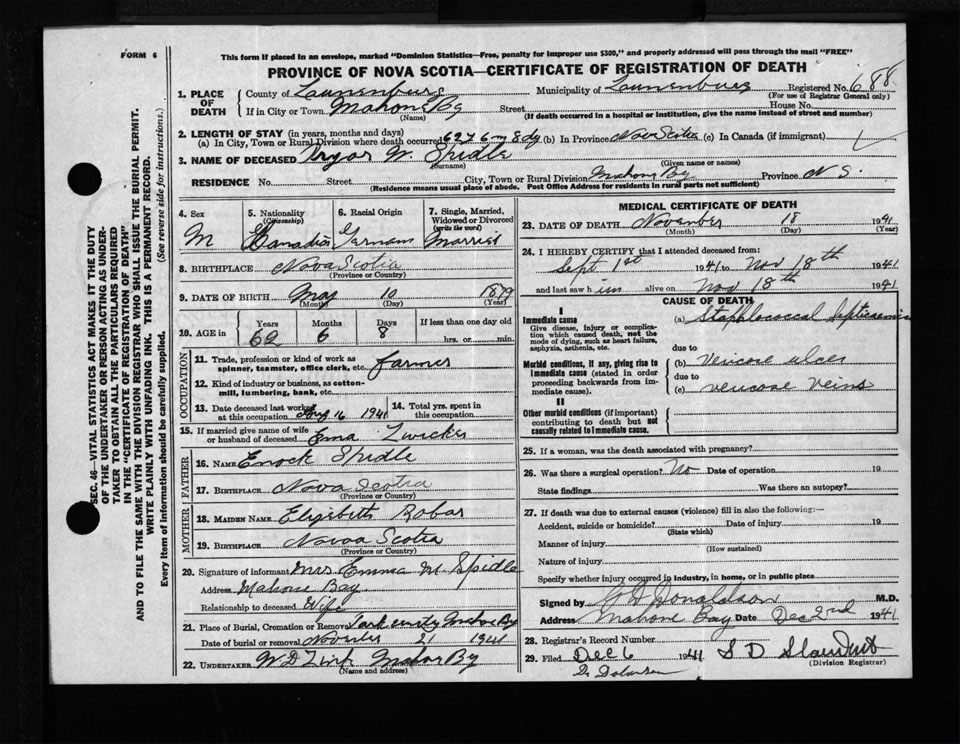 FORM 6
This form if placed in an envelope, marked "Dominion Statistics—Free, penalty for improper use $300," and properly addressed will pass through the mail "FREE"
PROVINCE OF NOVA SCOTIA—CERTIFICATE OF REGISTRATION OF DEATH
1. PLACE OF DEATH
County of Lunenburg Municipality of Lunenburg Registered No. 688
(For use of Registrar General only)
If in City or Town Mahone By Street House No.
(Name) (If death occurred in a hospital or institution, give the name instead of street and number)
2. LENGTH OF STAY (in years, months and days)
(a) In City, Town or Rural Division where death occurred 62 y 6 m 8 dy (b) In Province Nova Scotia (c) In Canada (if immigrant)
3. NAME OF DECEASED Pryor W. Spidle
(Surname) (Given name or names)
RESIDENCE No. Street City, Town or Rural Division Mahone By Province N S.
(Residence means usual place of abode. Post Office Address for residents in rural parts not sufficient)
4. Sex M
5. Nationality (Citizenship) Canadian
6. Racial Origin German
7. Single, Married, Widowed or Divorced (write the word) Married
8. BIRTHPLACE Nova Scotia
(Province or Country)
9. DATE OF BIRTH May 10 1879
(Month) (Day) (Year)
10. AGE in Years Months Days If less than one day old
62 6 8 hrs. or min.
OCCUPATION
11. Trade, profession or kind of work as spinner, teamster, office clerk, etc. farmer
12. Kind of industry or business, as cotton-mill, lumbering, bank, etc.
13. Date deceased last worked at this occupation Aug 16 1941
14. Total yrs. spent in this occupation.
15. If married give name of wife or husband of deceased Ema Zwicker
FATHER
16. NAME Enock Spidle
17. BIRTHPLACE Nova Scotia
(Province or Country)
MOTHER
18. MAIDEN NAME Elizibeth Robar
19. BIRTHPLACE Novoa Scotia
(Province or Country)
20. Signature of informant Mrs Emma M. Spidle
Address Mahone Bay
Relationship to deceased Wife
21. Place of Burial, Cremation or Removal Mahone By
Date of burial or removal November 21 1941
22. UNDERTAKER W D Zink Mahone By
(Name and address)
MEDICAL CERTIFICATE OF DEATH
23. DATE OF DEATH November 18 1941
(Month) (Day) (Year)
24. I HEREBY CERTIFY that I attended deceased from:
Sept 1st 1941 to Nov 18th 1941
and last saw him alive on Nov 18th 1941
CAUSE OF DEATH
I
Immediate cause
Give disease, injury or complication which caused death, not the mode of dying, such as heart failure, asphyxia, asthenia, etc.
(a) Staphlococcal Septicaemia
due to
Morbid conditions, if any, giving rise to immediate cause (stated in order proceeding backwards from immediate cause).
(b) Vericose ulcer
due to
(c) Vericose Veins
II
Other morbid conditions (if important) contributing to death but not causally related to immediate cause.
25. If a woman, was the death associated with pregnancy?
26. Was there a surgical operation? No Date of operation 19
State findings Was there an autopsy?
27. If death was due to external causes (violence) fill in also the following:—
Accident, suicide or homicide? Date of injury 19
(State which)
Manner of injury
(How sustained)
Nature of injury
Specify whether injury occurred in industry, in home, or in public place
Signed by Donaldson M.D.
Address Mahone Bay Date Dec 2nd 1941
28. Registrar's Record Number
29. Filed Dec 6 1941 S D
(Division Registrar)
SEC. 46—VITAL STATISTICS ACT MAKES IT THE DUTY
OF THE UNDERTAKER OR PERSON ACTING AS UNDER-
TAKER TO OBTAIN ALL THE PARTICULARS REQUIRED
IN THE "CERTIFICATE OF REGISTRATION OF DEATH"
AND TO FILE THE SAME WITH THE DIVISION REGISTRAR WHO SHALL ISSUE THE BURIAL PERMIT.
WRITE PLAINLY WITH UNFADING INK. THIS IS A PERMANENT RECORD.
Every item of information should be carefully supplied. (See reverse side for instructions.)